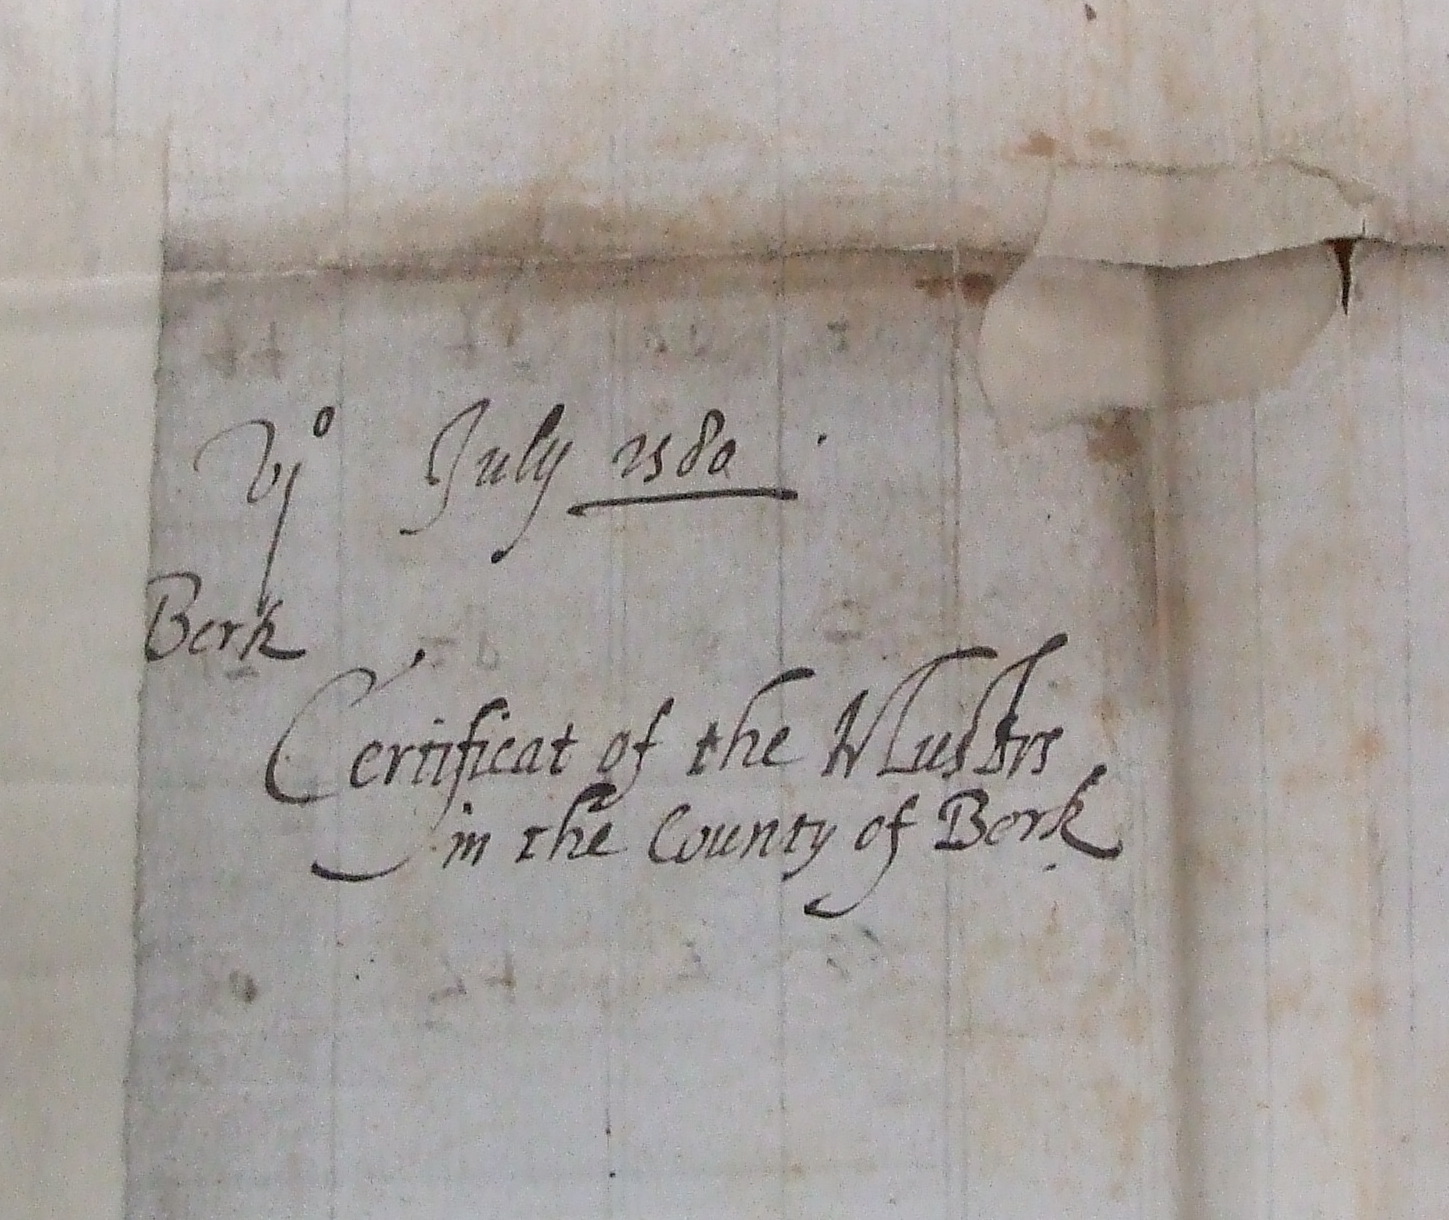 Vjº July 1580
Berk
Certificat of the Mustrs
in the County of Berk